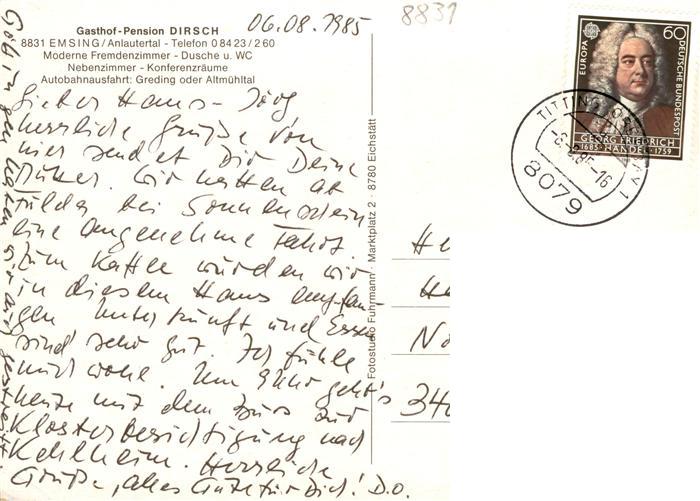 Gasthof-Pension DIRSCH
8831 EMSING/Anlautertal - Telefon 08423/260
Moderne Fremdenzimmer - Dusche u. WC
Nebenzimmer - Konferenzräume
Autobahnausfahrt: Greding oder Altmühltal
06.08.1985
8831
Lieber Hans-Jörg
herzliche Grüße von
hier sendet Dir Deine
Mutter. Wir hatten ab
Fulda bei Sonnenschein
eine angenehme Fahrt.
Zum Kaffee wurden wir
in diesem Haus empfan-
gen Unterkunft und Essen
sind sehr gut. Ich fühle
mich wohl. Um 9 Uhr geht's
heute mit dem Bus zur
Klosterbesichtigung nach
Kelheim. Herzliche
Grüße, alles Gute für Dich! D.O.
Göttingen haben wir
Fotostudio Fuhrmann · Marktplatz 2 · 8780 Eichstätt
EUROPA
60
DEUTSCHE BUNDESPOST
GEORG FRIEDRICH
1685 HÄNDEL 1759
TITTING
1
85-16
8079
He
No
340